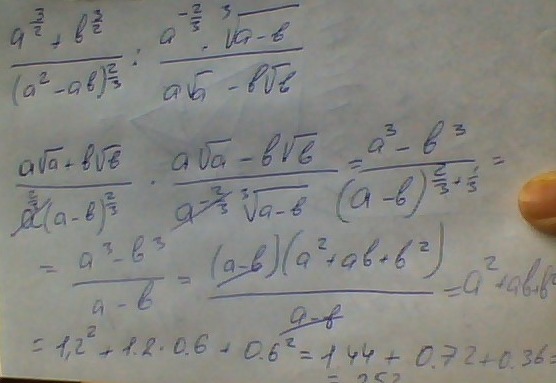 (a^{3/2} + b^{3/2}) / (a² - ab)^{2/3} : (a^{-2/3} · ∛(a-b)) / (a√a - b√b)
(a√a + b√b) / (a^{2/3}(a-b)^{2/3}) · (a√a - b√b) / (a^{-2/3} ∛(a-b)) = (a³ - b³) / (a-b)^{2/3+1/3} =
= (a³ - b³) / (a - b) = ((a-b)(a² + ab + b²)) / (a-b) = a² + ab + b²
= 1,2² + 1.2 · 0.6 + 0.6² = 1,44 + 0.72 + 0.36 =
= 252